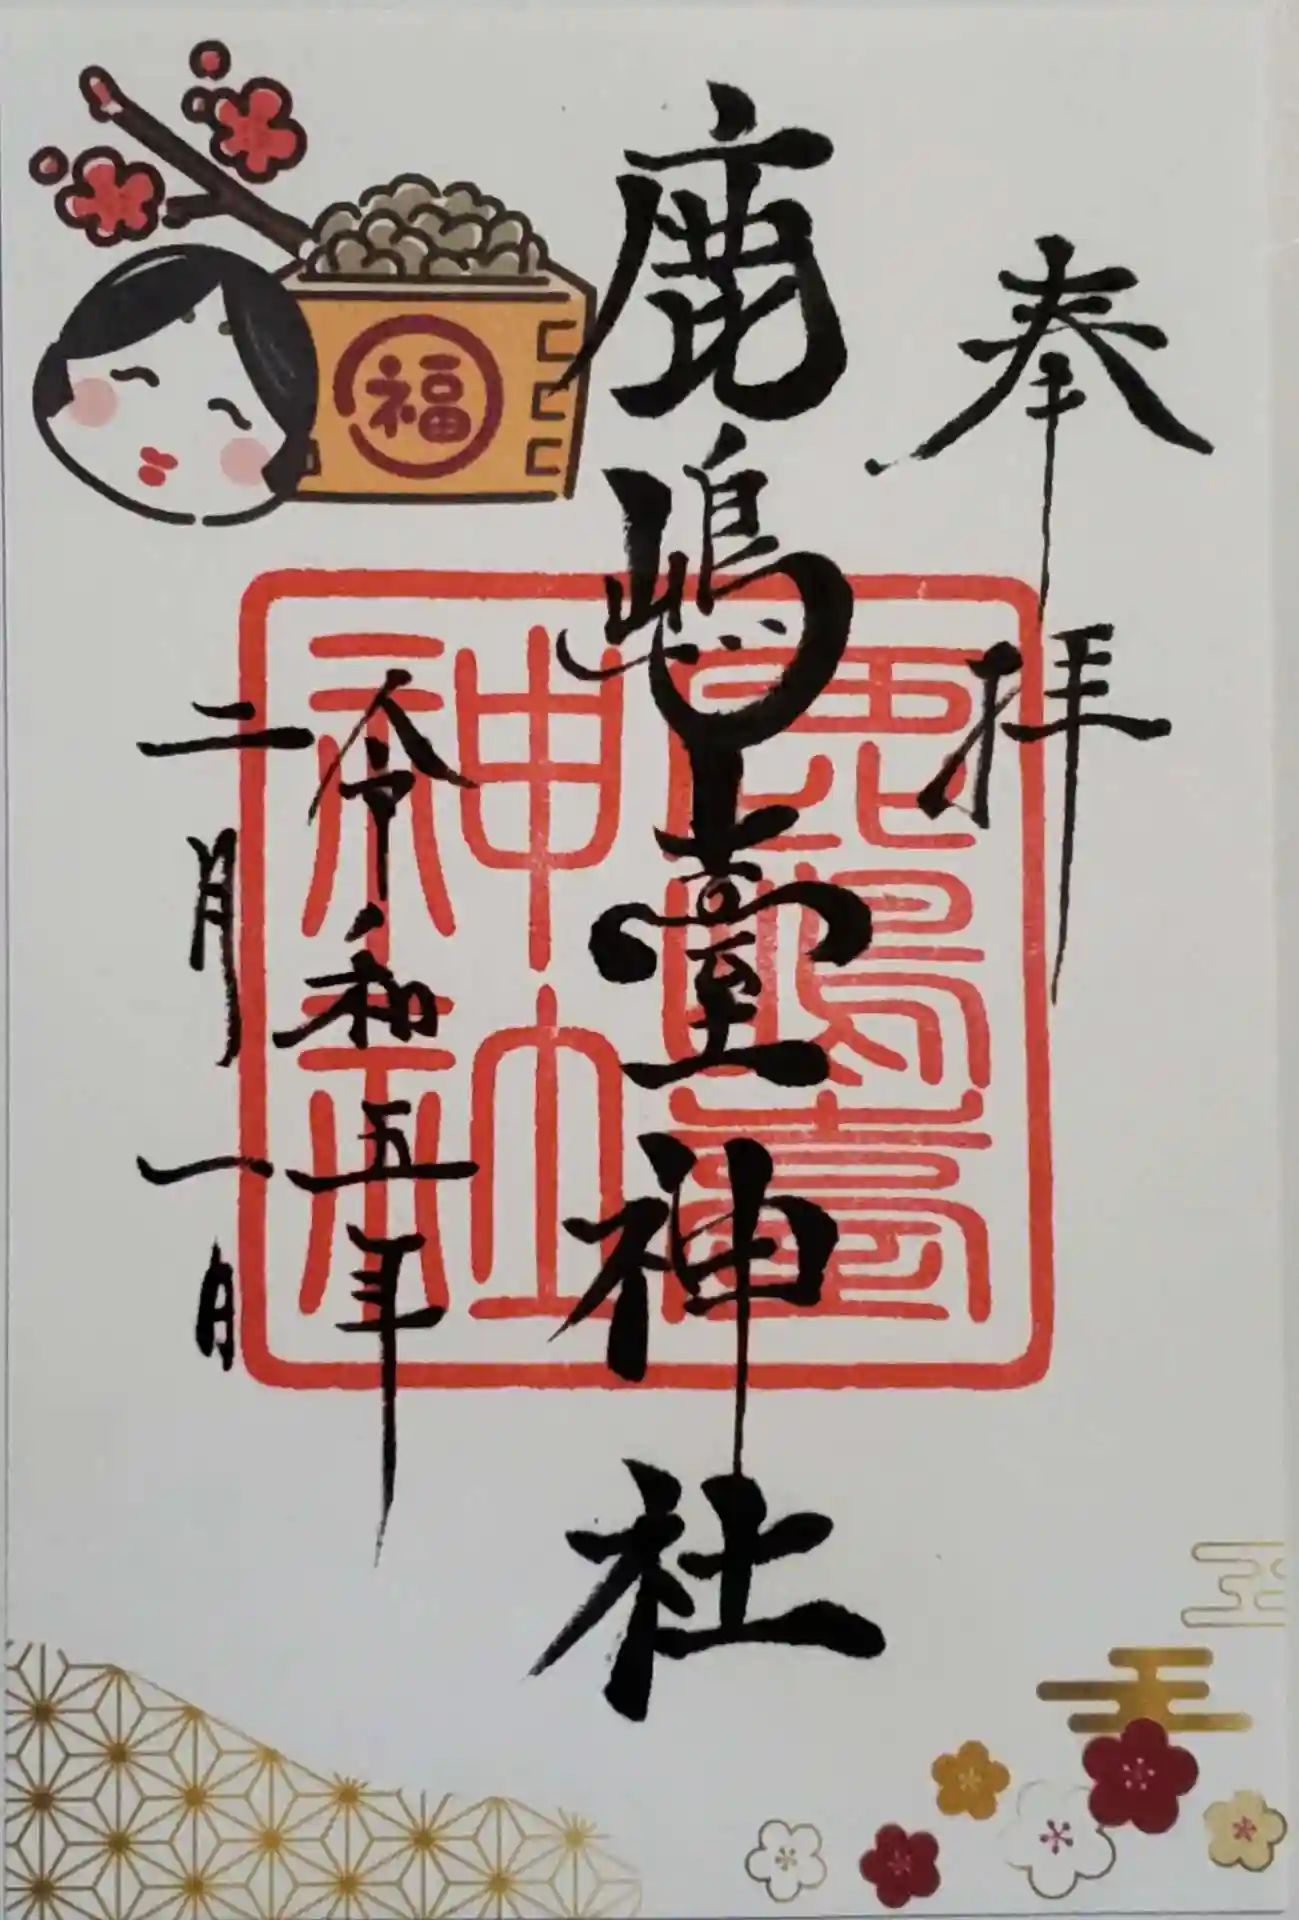 奉拝
鹿嶋臺神社
令和五年
二月一日
福
鹿嶋臺
神社